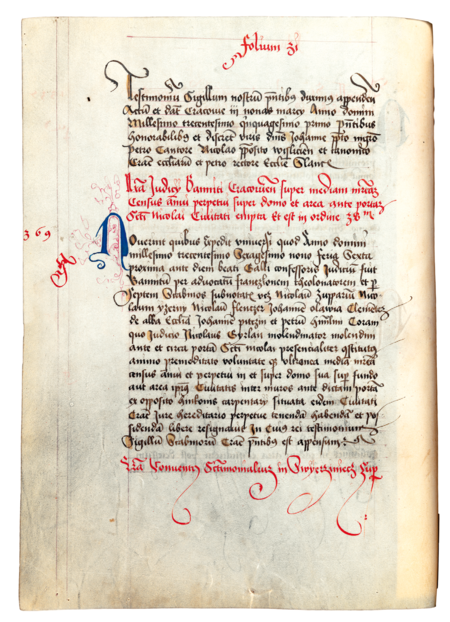 Folium 31
Testimoniu Sigillum nostrū pntibus duximus appenden
Actū et datū Cracovie in nonas marcy Anno domini
Millesimo trecentesimo quinquagesimo primo pntibus
Honorabilibus et discret viris dnis Johanne
Petro Cantore Nicolao pposito wislicien et canonico
Crac ecclesiarū et petro rectore Ecclie
Lra Judicy Banniti Cracovien super mediam mrcam
Census annui perpetui super domo et area ante portam
Scti Nicolai Civitati empta Et est in ordine 38
369
Noverint quibus expedit universi quod Anno domini
millesimo trecentesimo Sexagesimo nono feria Sexta
proxima ante diem beati Galli confessoris Judiciū fuit
Bannitū per advocatū franczkonem thecolonatorem et p
Septem Scabinos subnotatos vez Nicolaū Zupparium Nico
laum Nicolaū Johannē Clemētē
de alba Ecclia Johannē et petrū Coram
quo Judicio Nicolaus Gyrlan molendinator molendini
ante et circa portā Scti nicolai presencialiter constitutus
animo premeditato voluntate mediā mrcā
census annui et perpetui in et super domo sua sup fundo
aut area ipius Civitatis inter muros ante dictam portā
ex opposito carpentarij situata eidem Civitati
Crac Jure hereditario perpetue tenendā habendā et po
sidendā libere resignavit In Cuius rei testimonium
Sigillū Scabinorū Crac pntibus est appensum
Lra Conventus Sctimonialium in Swyerzynecz Sup